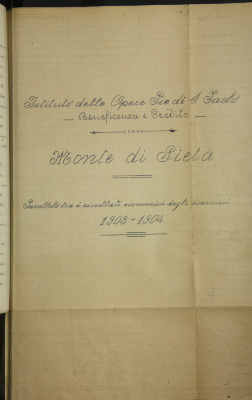 Istituto delle Opere Pie di S. Paolo
Beneficenza e Credito
Monte di Pietà
Parallelo tra i risultati economici degli esercizi
1903-1904.